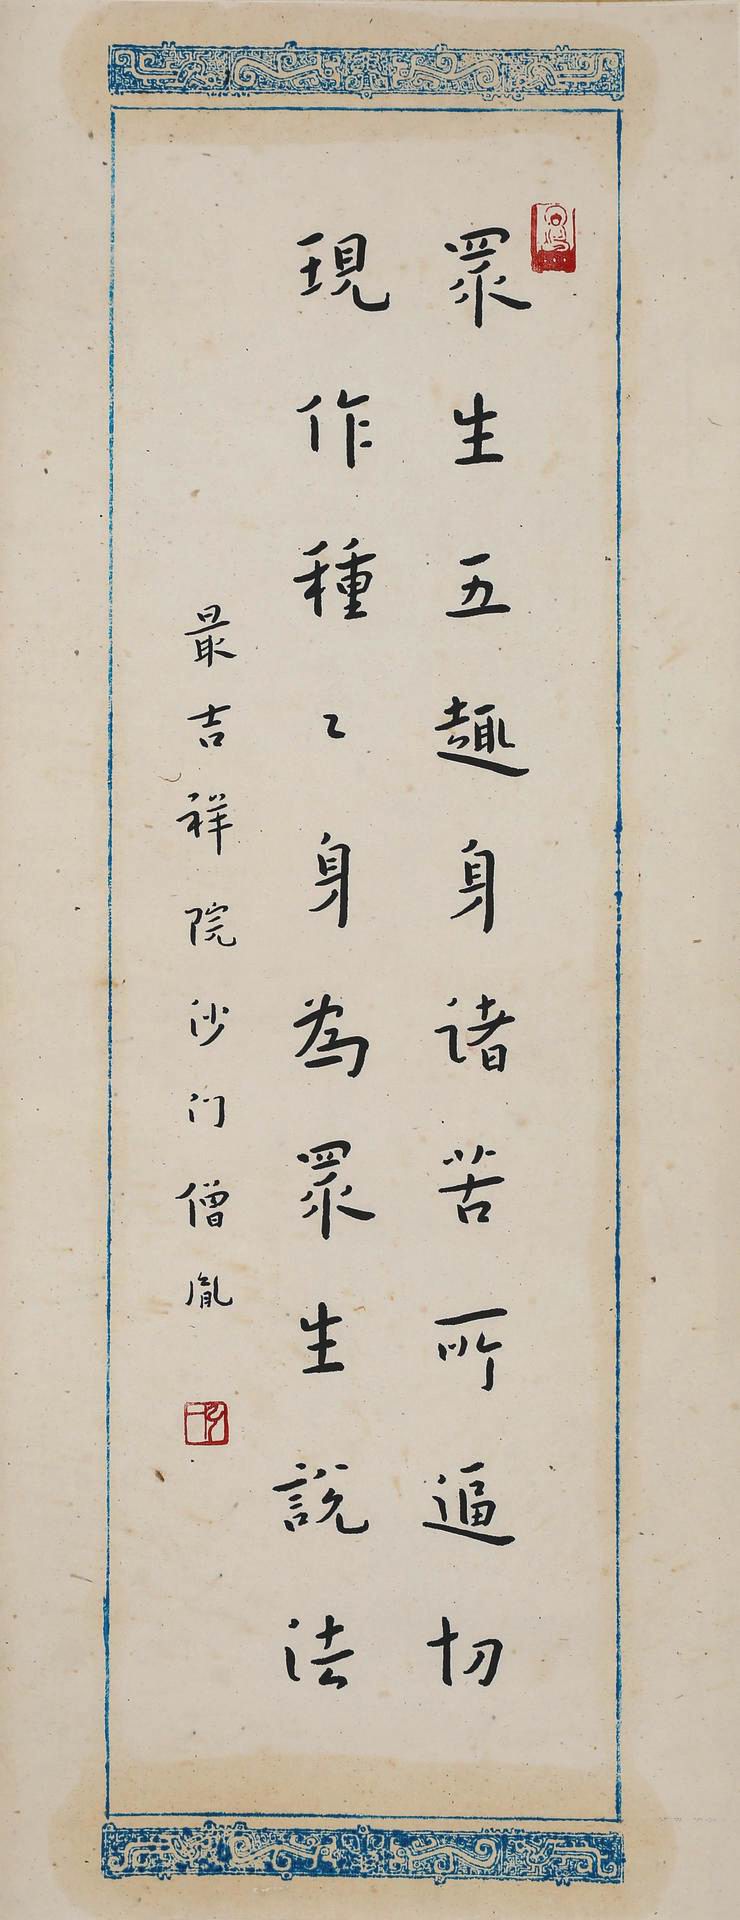 眾生五趣身诸苦所逼切
現作種々身為眾生説法
最吉祥院沙门僧胤